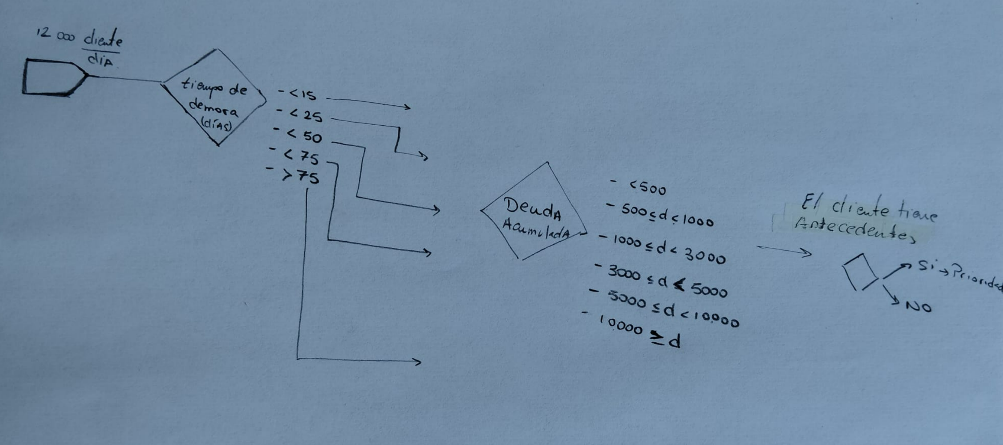 12 000 cliente
día
tiempo de
demora
(días)
- <15
- <25
- <50
- <75
- >75
Deuda
Acumulada
- <500
- 500≤d<1000
- 1000≤d<3000
- 3000≤d<5000
- 5000≤d<10000
- 10.000≥d
El cliente tiene
Antecedentes
Si→Prioridad
NO